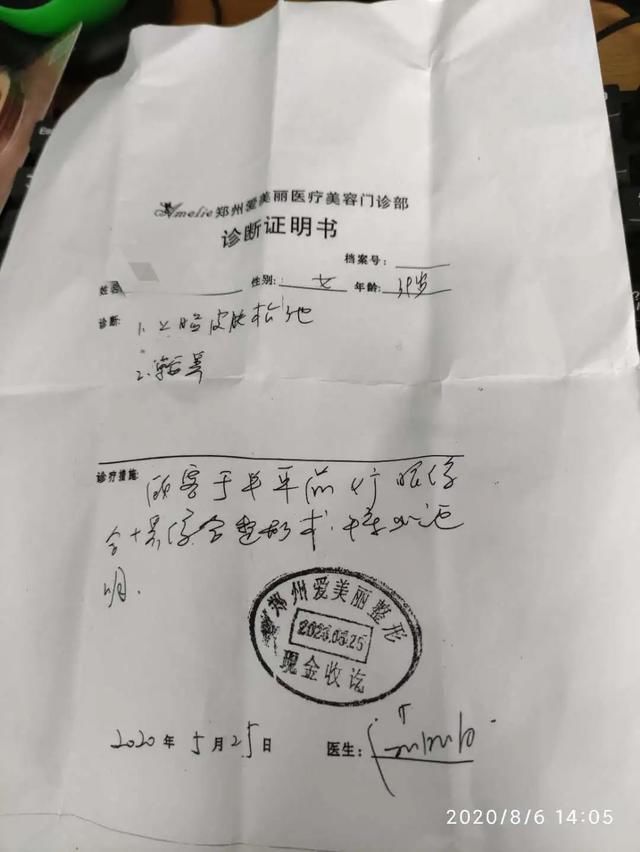 Amelie郑州爱美丽医疗美容门诊部
诊断证明书
档案号:
姓名 性别: 女 年龄: 39岁
诊断: 1. 上睑皮肤松弛
2.
诊疗措施: 顾客于半年前行眼综
合+鼻综合整形术.特此证
明.
郑州爱美丽整形
2020.05.25
现金收讫
2020年5月25日 医生:
2020/8/6 14:05